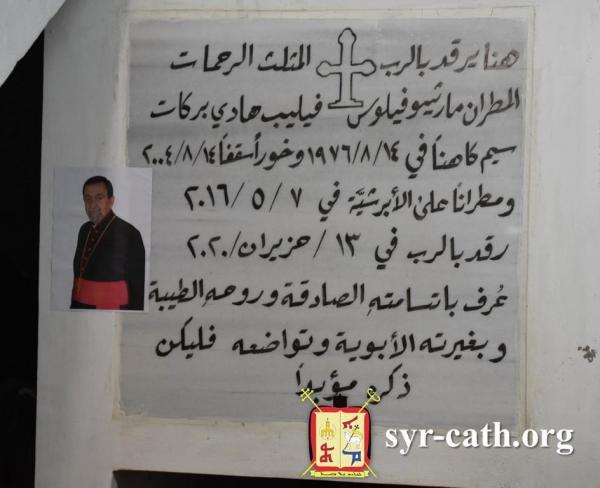 هنا يرقد بالرب المثلث الرحمات
المطران مار ثيوفيلوس فيليب هادي بركات
سيم كاهناً في ١٩٧٦/٨/١٤ وخوراسقفاً ٢٠٠٤/٨/١٤
ومطراناً على الأبرشيَّة في ٧ / ٥ / ٢٠١٦
رقد بالرب في ١٣ / حزيران / ٢٠٢٠
عُرف بابتسامتهِ الصادقة وروحهِ الطيبة
وبغيرته الأبوية وتواضعه فليكن
ذكره مؤبداً
syr-cath.org